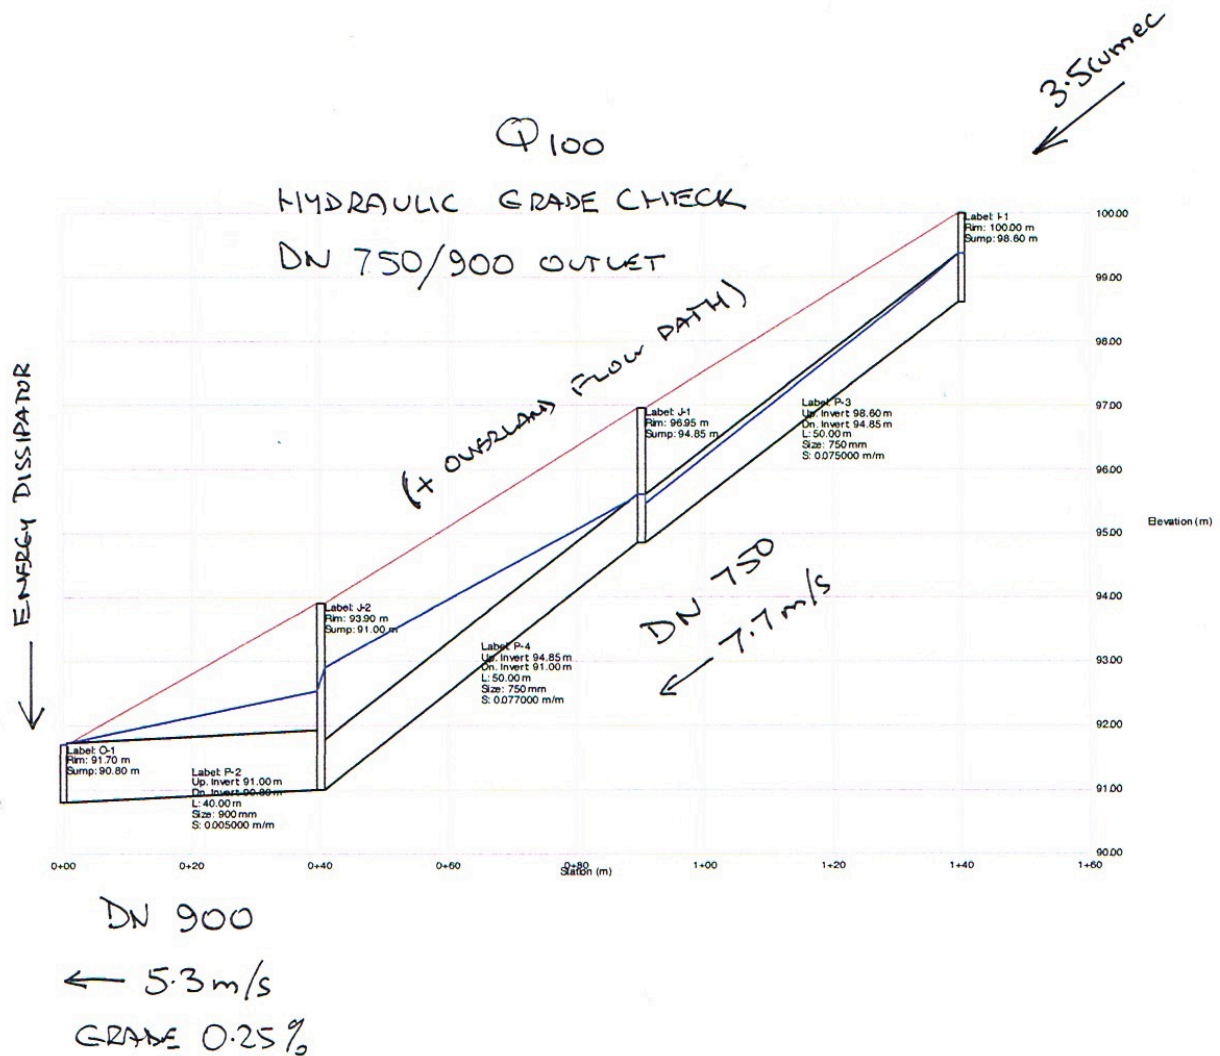 3.5cumec
Q100
HYDRAULIC GRADE CHECK
DN 750/900 OUTLET
(+ OVERLAND FLOW PATH)
ENERGY DISSIPATOR
Label: I-1
Rim: 100.00 m
Sump: 98.60 m
Label: J-1
Rim: 96.95 m
Sump: 94.85 m
Label: P-3
Up. Invert 98.60 m
Dn. Invert 94.85 m
L: 50.00 m
Size: 750 mm
S: 0.075000 m/m
DN 750
7.7 m/s
Label: J-2
Rim: 93.90 m
Sump: 91.00 m
Label: P-4
Up. Invert 94.85 m
Dn. Invert 91.00 m
L: 50.00 m
Size: 750 mm
S: 0.077000 m/m
Label: O-1
Rim: 91.70 m
Sump: 90.80 m
Label: P-2
Up. Invert 91.00 m
Dn. Invert 90.80 m
L: 40.00 m
Size: 900 mm
S: 0.005000 m/m
100.00
99.00
98.00
97.00
96.00
95.00
94.00
93.00
92.00
91.00
90.00
Elevation (m)
0+00
0+20
0+40
0+60
0+80
1+00
1+20
1+40
1+60
Station (m)
DN 900
5.3 m/s
GRADE 0.25%